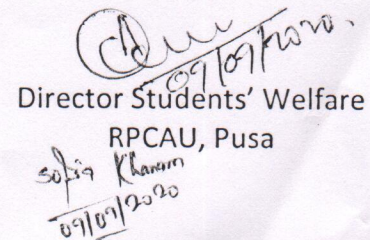 09/09/2020.
Director Students' Welfare
RPCAU, Pusa
Sofia Khanam
09/09/2020